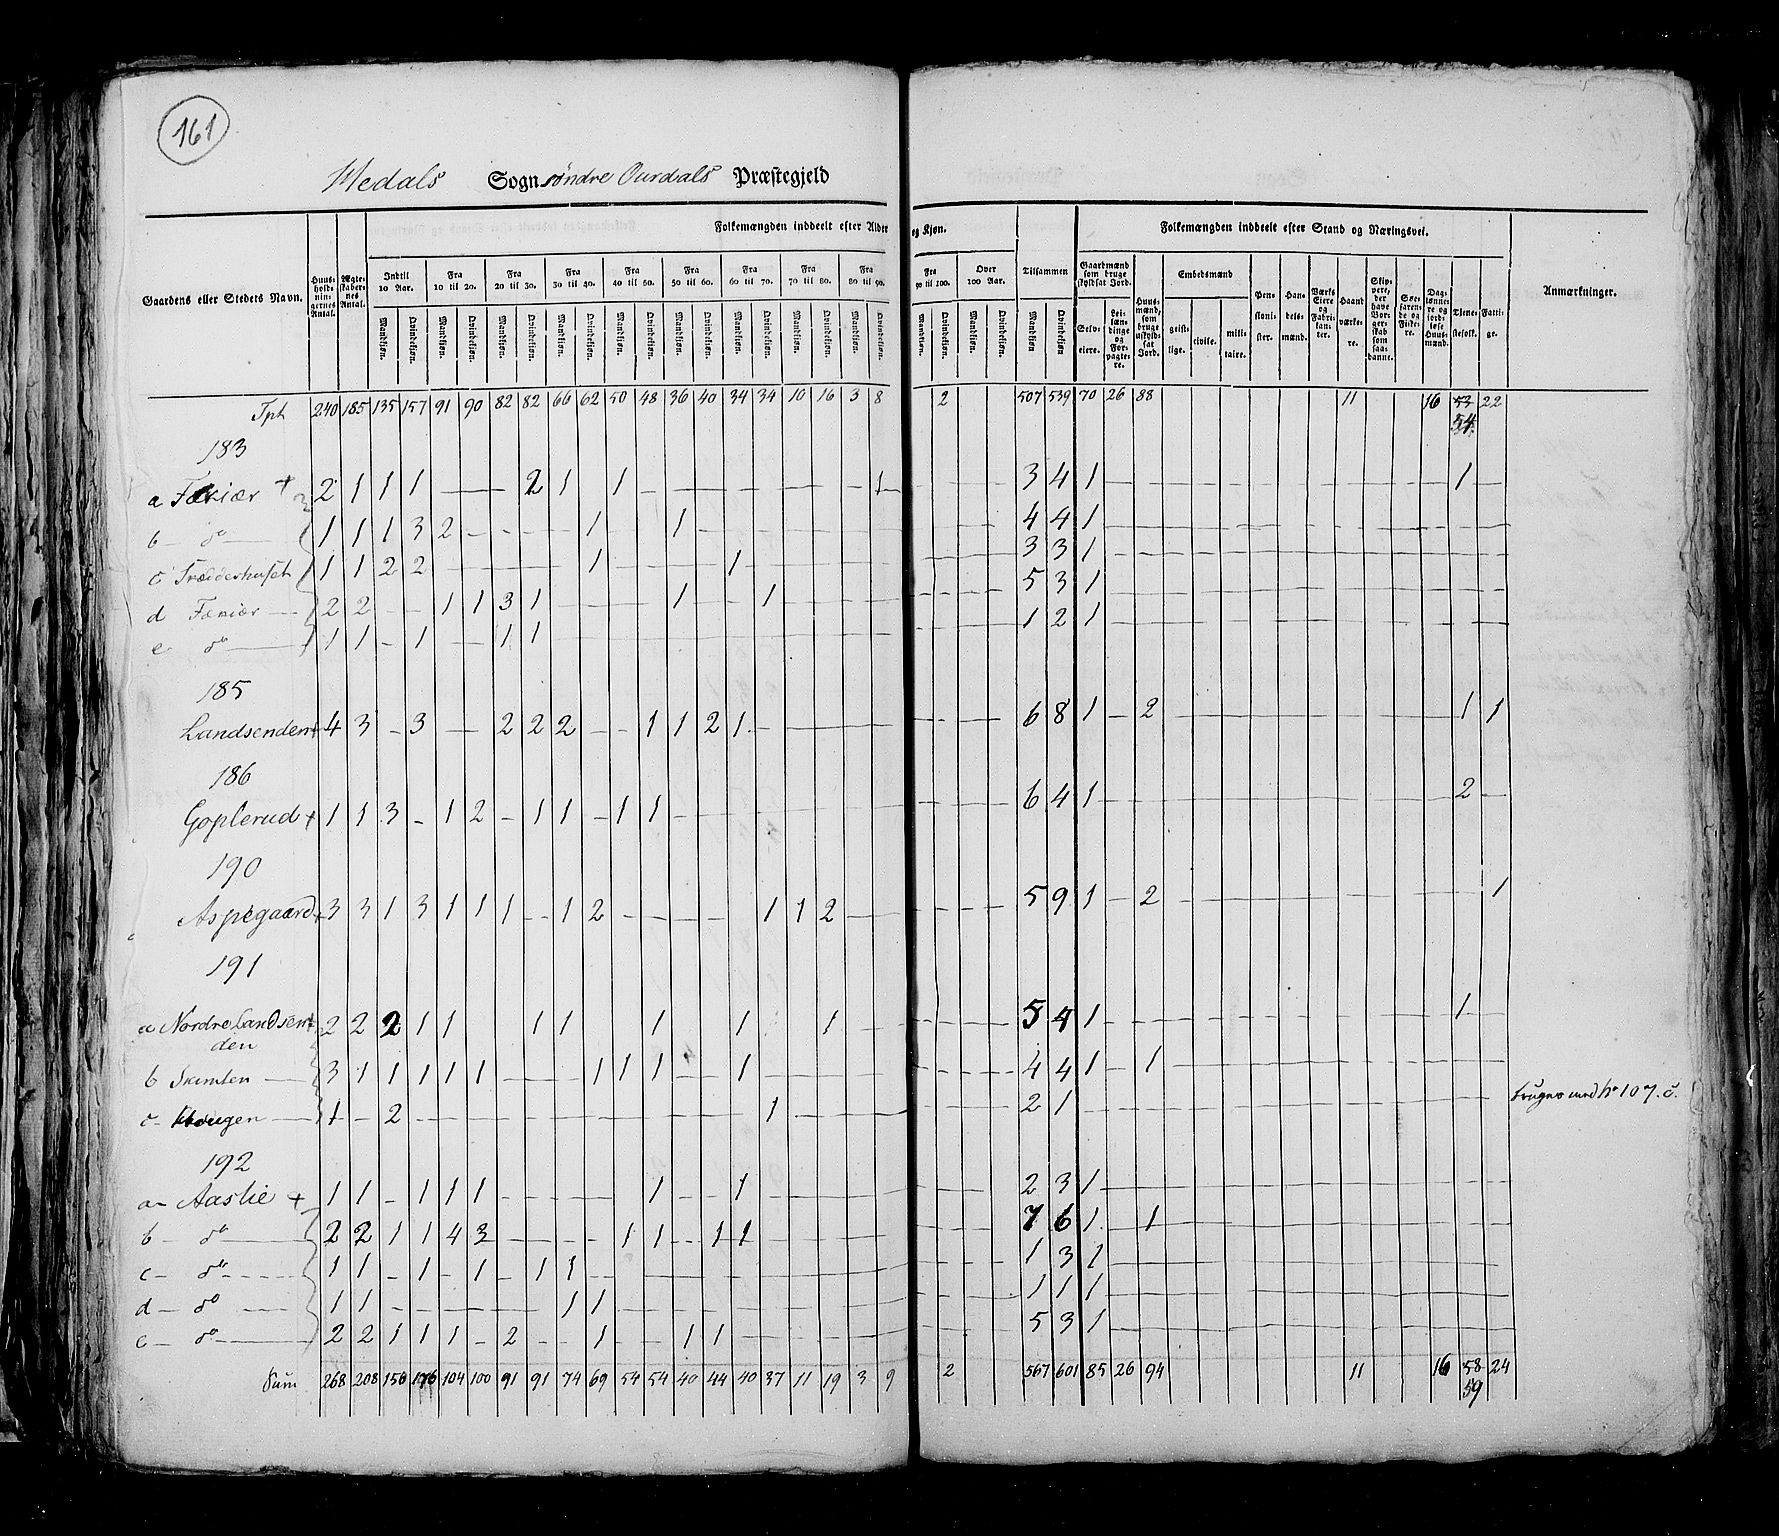 161
Medals Sogn søndre Ourdals Præstegjeld
Gaardens eller Stedets Navn.
Huusholdningernes Antal.
Ægteskabernes Antal.
Folkemængden inddeelt efter Alder og Kjøn.
Indtil 10 Aar. Fra 10 til 20. Fra 20 til 30. Fra 30 til 40. Fra 40 til 50. Fra 50 til 60. Fra 60 til 70. Fra 70 til 80. Fra 80 til 90. Fra 90 til 100. Over 100 Aar.
Mandkjøn. Qvindekjøn.
Tilsammen
Folkemængden inddeelt efter Stand og Næringsvei.
Gaardmænd som bruge skyldsat Jord.
Selveiere. Leilændinge og Forpagtere.
Huusmænd, som bruge uskyldsat Jord.
Embedsmænd
geistlige. civile. militaire.
Pensionister. Handelsmænd. Værks Eiere og Fabrikanter. Haandværkere. Skippere, der have Borgerskab som saadanne. Søefarende og Fiskere. Dagslønnere og jordløse Huusmænd. Tjenestefolk. Fattige.
Anmærkninger.
Tpt 240 185 135 157 91 90 82 82 66 62 50 48 36 40 34 34 10 16 3 8 2 507 539 70 26 88 11 16 53 22
54
183
a Fæsiær + 2 1 1 1 — — 2 1 - 1 - - - - 1 - 3 4 1 - 1 -
b — do — 1 1 1 3 2 - - - - 1 - - 1 - 4 4 1 -
c Træddershuset 1 1 2 2 - - - - 1 - - - - 1 - 3 3 1 -
d Fæsiær — 2 2 - - 1 1 3 1 - - - - 1 - - 1 - 5 3 1 -
e do — 1 1 - 1 - - 1 1 - 1 2 1 -
185
Landsenden + 4 3 - 3 - - 2 2 2 - - 1 1 2 1 - 6 8 1 - 2 - 1 1
186
Goplerud + 1 1 3 - 1 2 - 1 1 - 1 1 - 6 4 1 - 2 -
190
Aspegaard + 3 3 1 3 1 1 1 - 1 2 - - - - - 1 1 2 - 5 9 1 - 2 - 1
191
a Nordre Landsen + 2 2 2 1 1 1 1 1 1 1 - 5 4 1 - 1 -
den
b Skimten — 3 1 1 1 1 1 - - - 1 1 1 - - 1 - 4 4 1 - 1 -
c — Hougen — 1 - 2 - 1 - 2 1 - bruges med No 107. c.
192
a — Aaslie + 1 1 - 1 1 1 - - - - - 1 - - 1 - 2 3 1 -
b — do — 2 2 1 1 4 3 - - - - 1 1 - - 1 1 - 7 6 1 - 1 -
c — do - - - - 1 1 - 1 - 1 - 1 1 - - 1 3 1 -
d — do — 1 1 - - - - - - 1 1 - 1 1 1 -
e — do — 2 2 1 1 1 - 2 - - 1 - - 1 1 - 5 3 1 -
Sum 268 208 150 176 104 100 91 91 74 69 54 54 40 44 40 37 11 19 3 9 2 567 601 85 26 94 11 16 58 24
59